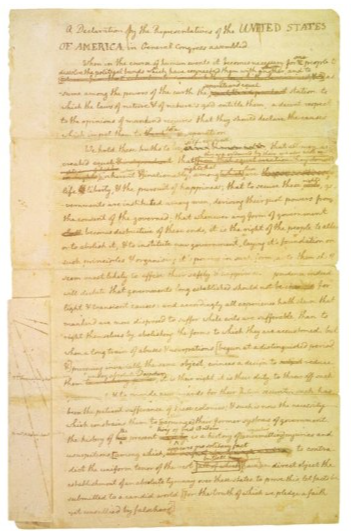 A Declaration by the Representatives of the UNITED STATES
OF AMERICA, in General Congress assembled.
When in the course of human events it becomes necessary for people to
dissolve the political bands which have connected them with another, and to
sume among the powers of the earth the station to
which the laws of nature & of nature's god entitle them, a decent respect
to the opinions of mankind requires that they should declare the causes
which impel them to the separation.
We hold these truths to be that all men are
created equal
life & liberty, & the pursuit of happiness; that to secure these, go-
vernments are instituted among men, deriving their just powers from
the consent of the governed; that whenever any form of government
becomes destructive of these ends, it is the right of the people to alter
or to abolish it, & to institute new government, laying it's foundation on
such principles & organising it's powers in such form, as to them shall
seem most likely to effect their safety & happiness. prudence indeed
will dictate that governments long established should not be changed for
light & transient causes: and accordingly all experience hath shewn that
mankind are more disposed to suffer while evils are sufferable, than to
right themselves by abolishing the forms to which they are accustomed. but
when a long train of abuses & usurpations, begun at a distinguished period
& pursuing invariably the same object, evinces a design to reduce
them it is their right, it is their duty, to throw off such
& to provide new guards for their future security. such has
been the patient sufferance of these colonies; & such is now the necessity
which constrains them to their former systems of government.
the history of is a history of injuries and
usurpations, among which to contra-
dict the uniform tenor of the rest, in direct object the
establishment of an absolute tyranny over these states. to prove this, let facts be
submitted to a candid world, for the truth of which we pledge a faith
yet unsullied by falsehood.